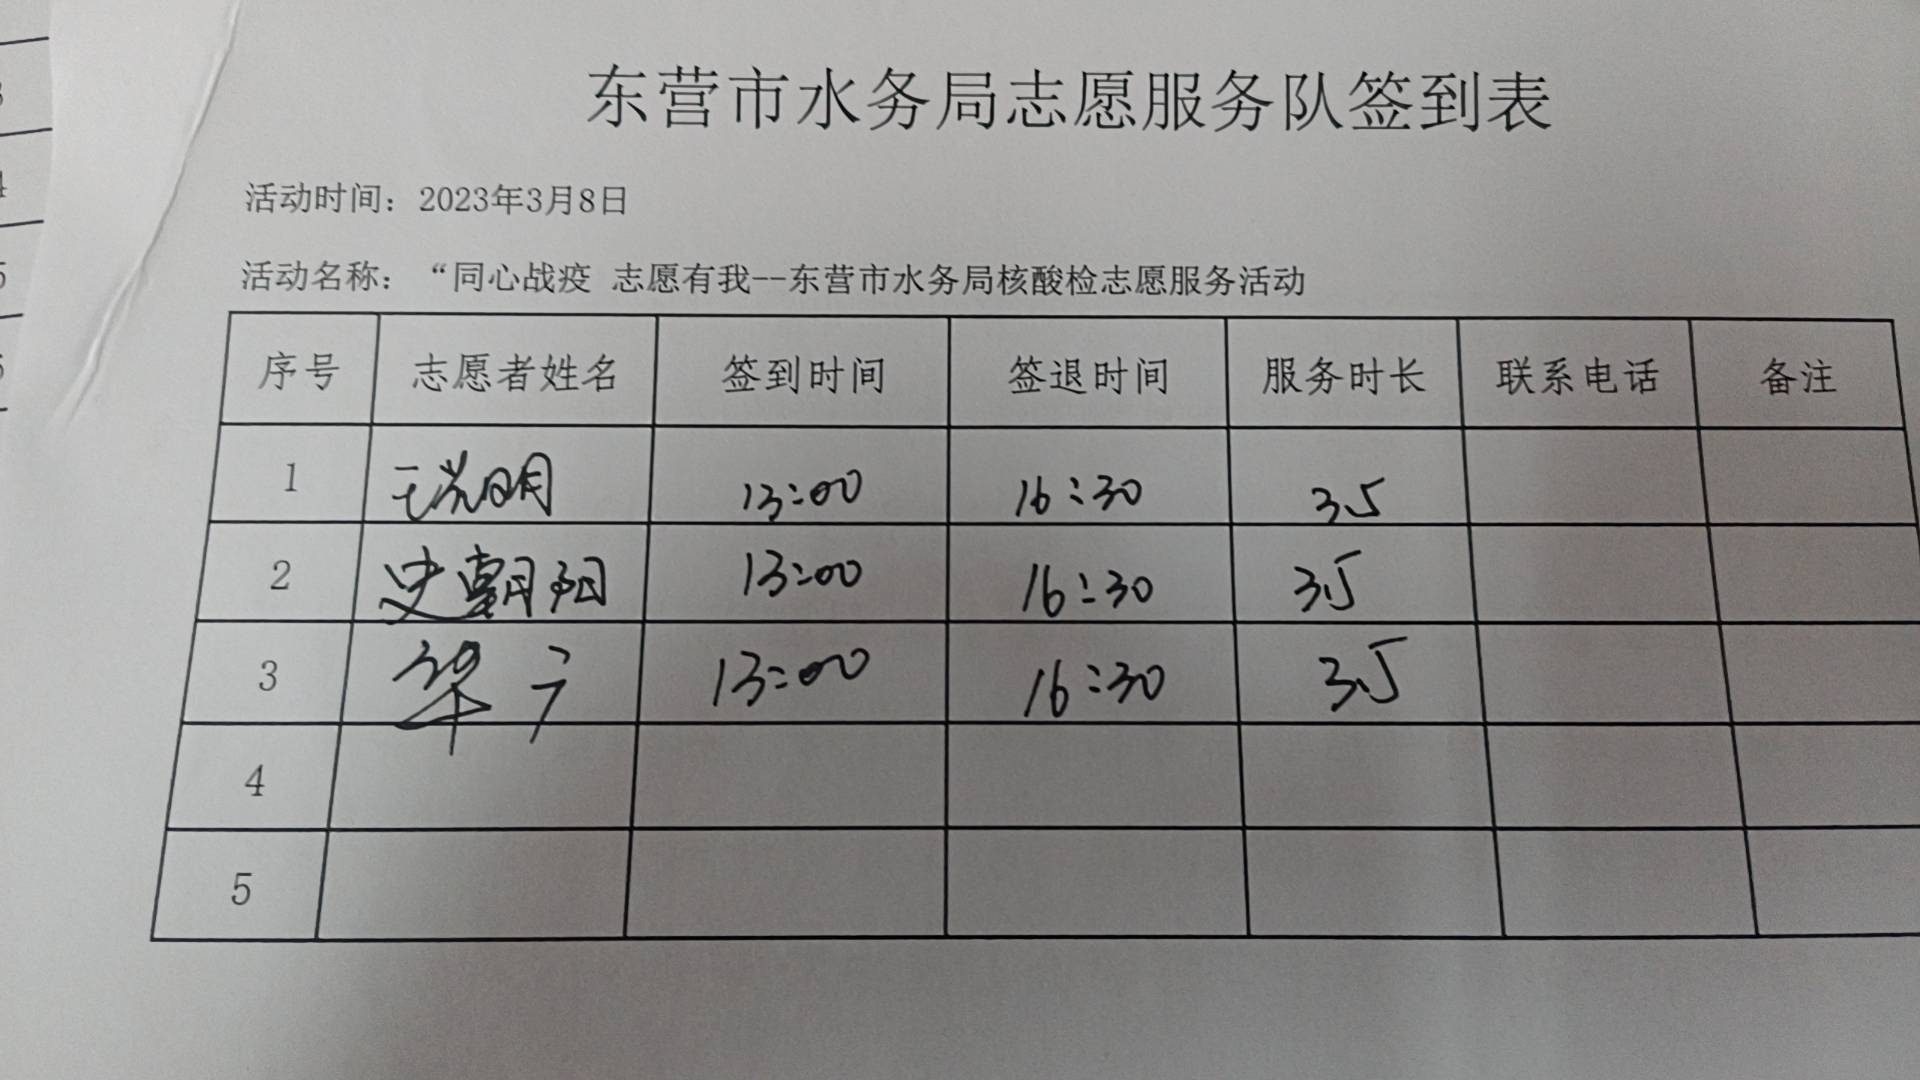 东营市水务局志愿服务队签到表
活动时间：2023年3月8日
活动名称：“同心战疫 志愿有我--东营市水务局核酸检志愿服务活动
序号 志愿者姓名 签到时间 签退时间 服务时长 联系电话 备注
1 13:00 16:30 3.5
2 史朝阳 13:00 16:30 3.5
3 华广 13:00 16:30 3.5
4
5